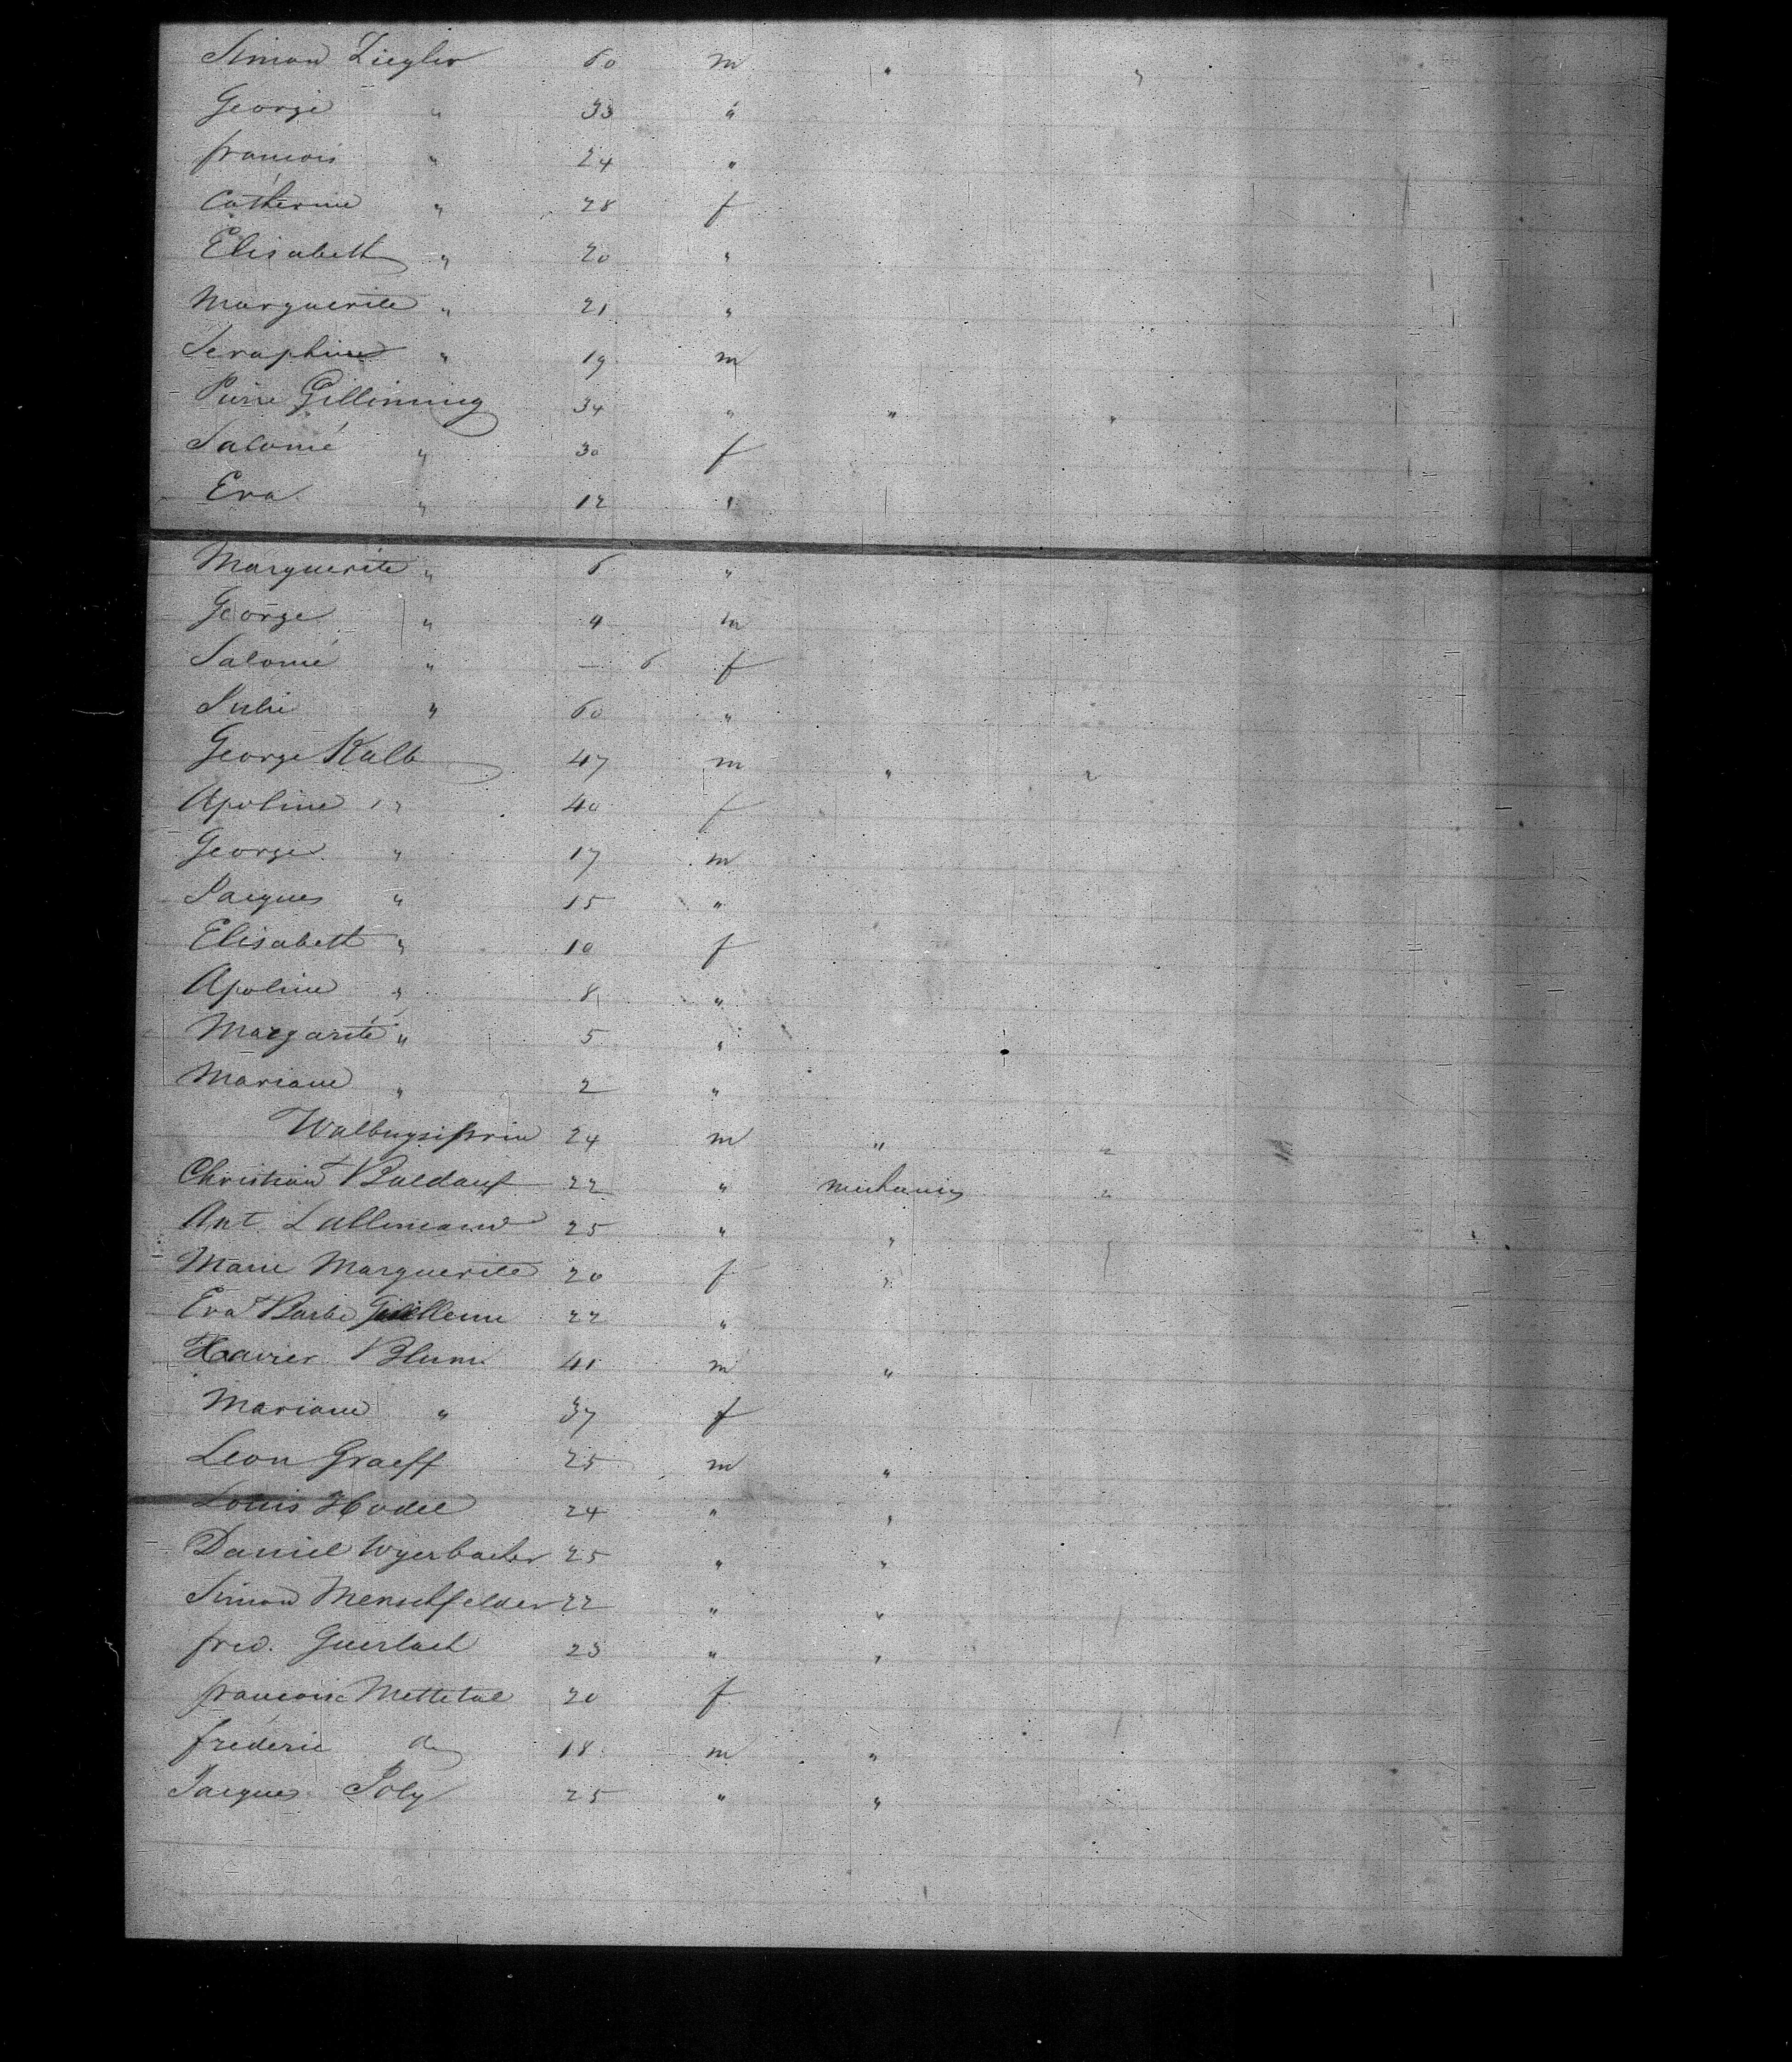 Simon Ziegler 60 m " "
George " 33 "
francois " 24 "
Catherine " 28 f
Elisabeth " 20 "
Marguerite " 21 "
Seraphine " 19 m
Pierre Gillinnig 34 " " "
Salomé " 30 f
Eva " 12 "
Marguerite " 6 "
George " 4 m
Salomé " — 6 f
Julie " 60 "
George Kalb 47 m " "
Apoline " 40 f
George " 17 m
Jacques " 15 "
Elisabeth " 10 f
Apoline " 8 "
Margarite " 5 "
Mariane " 2 "
24 m " "
Christian Baldauf 22 " mechanics "
Ant. Lallemand 25 " "
Marie Marguerite 20 f "
Eva Barbe Guillemi 22 "
Xavier Blum 41 m "
Mariane " 37 f
Leon Graeff 25 m "
Louis Hodel 24 " "
Daniel Wyerbacher 25 " "
Simon Menschfelder 22 " "
fred. Guerlach 23 " "
françoise Mettetal 20 f
frederic do 18 m "
Jacques Joly 25 " "